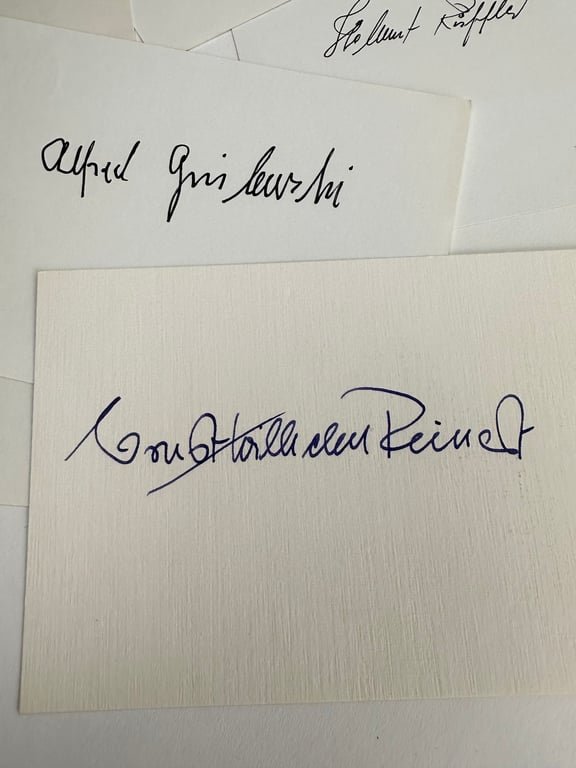 Helmut Rüffler
Alfred Grislawski
Ernst-Wilhelm Reinert